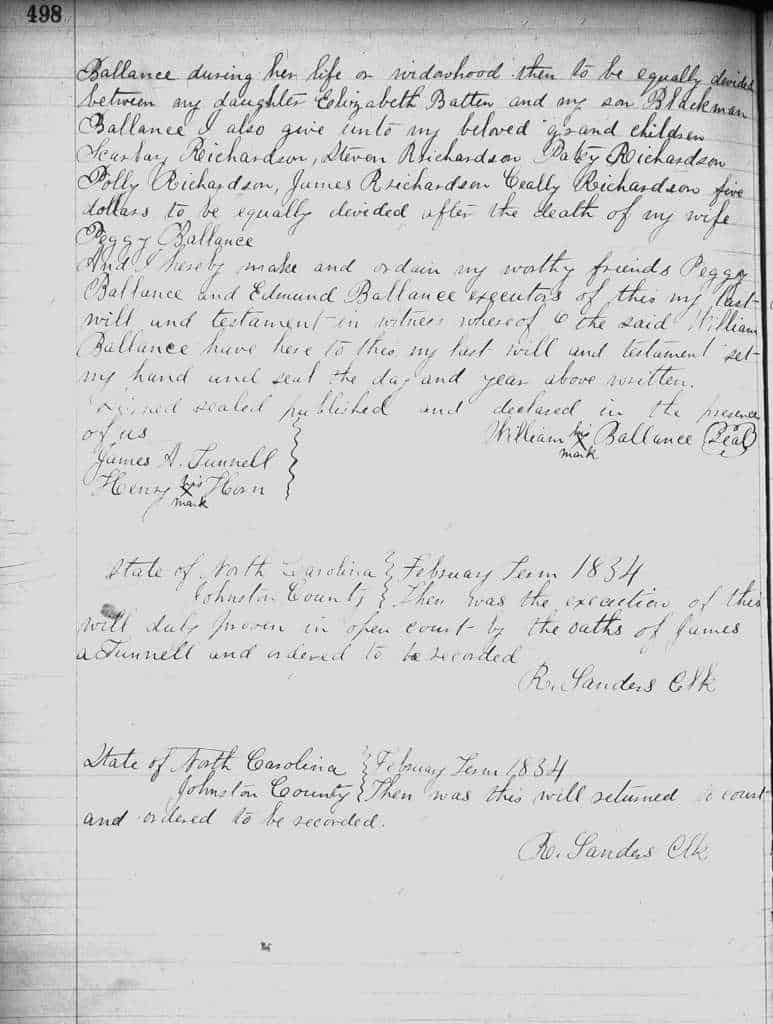 498
Ballance during her life or widowhood then to be equally devided
between my daughter Eelizabeth Batten and my son Blackman
Ballance I also give unto my beloved grand children
Scarbary Richardson, Steven Rrichardson Patcy Richardson
Polly Richardson, James Rrichardson Ceally Richardson five
dollars to be equally devided after the death of my wife
Peggy Ballance
And I hereby make and ordain my worthy friends Peggy
Ballance and Edmund Ballance executors of this my last
will and testament in witness whereof I the said William
Ballance have here to this my last will and testament set
my hand and seal the day and year above written.
Signed sealed published and declared in the presence
of us William his X mark Ballance (Seal)
James A. Tunnell
Henry his X mark Horn
State of North Carolina } February Term 1834
Johnston County } Then was the execution of this
will duly proven in open court by the oaths of James
A Tunnell and ordered to be recorded
R. Sanders Clk
State of North Carolina } February Term 1834
Johnston County } Then was this will returned to court
and ordered to be recorded.
R. Sanders Clk